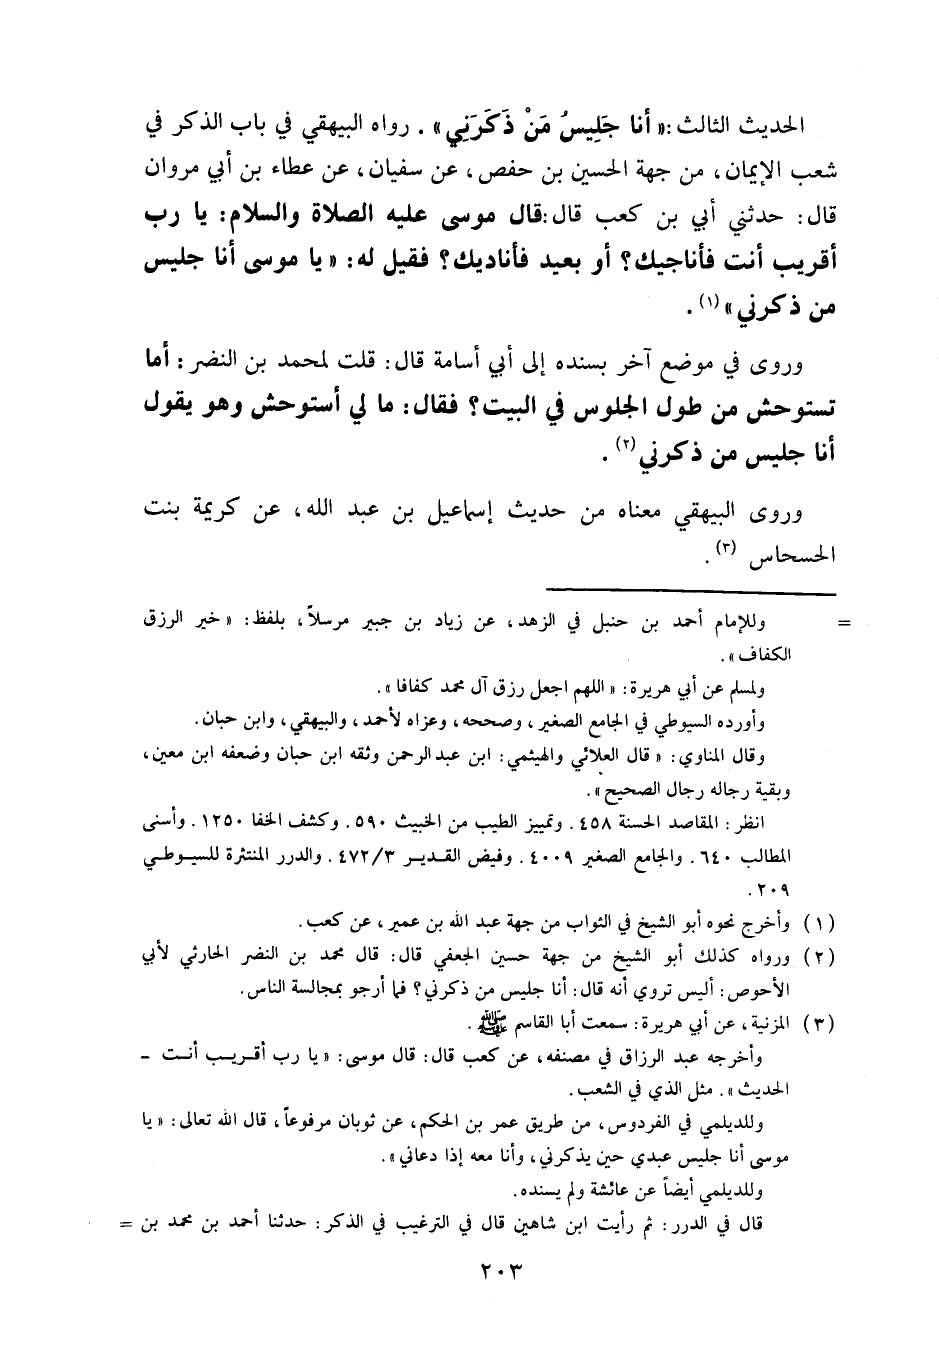 الحديث الثالث: « أنا جَلِيسُ مَنْ ذَكَرَنِي » . رواه البيهقي في باب الذكر في
شعب الإيمان، من جهة الحسين بن حفص، عن سفيان، عن عطاء بن أبي مروان
قال: حدثني أبي بن كعب قال: قال موسى عليه الصلاة والسلام: يا رب
أقريب أنت فأناجيك؟ أو بعيد فأناديك؟ فقيل له: « يا موسى أنا جليس
من ذكرني » (١) .
وروى في موضع آخر بسنده إلى أبي أسامة قال: قلت لمحمد بن النضر: أما
تستوحش من طول الجلوس في البيت؟ فقال: ما لي أستوحش وهو يقول
أنا جليس من ذكرني (٢) .
وروى البيهقي معناه من حديث إسماعيل بن عبد الله، عن كريمة بنت
الحسحاس (٣) .
= وللإمام أحمد بن حنبل في الزهد، عن زياد بن جبير مرسلاً، بلفظ: « خير الرزق
الكفاف » .
ولمسلم عن أبي هريرة: « اللهم اجعل رزق آل محمد كفافا » .
وأورده السيوطي في الجامع الصغير، وصححه، وعزاه لأحمد، والبيهقي، وابن حبان.
وقال المناوي: « قال العلائي والهيثمي: ابن عبد الرحمن وثقه ابن حبان وضعفه ابن معين،
وبقية رجاله رجال الصحيح » .
انظر: المقاصد الحسنة ٤٥٨. وتمييز الطيب من الخبيث ٥٩٠. وكشف الخفا ١٢٥٠. وأسنى
المطالب ٦٤٠. والجامع الصغير ٤٠٠٩. وفيض القدير ٤٧٢/٣. والدرر المنتثرة للسيوطي
٢٠٩ .
(١) وأخرج نحوه أبو الشيخ في الثواب من جهة عبد الله بن عمير، عن كعب.
(٢) ورواه كذلك أبو الشيخ من جهة حسين الجعفي قال: قال محمد بن النضر الحارثي لأبي
الأحوص: أليس تروي أنه قال: أنا جليس من ذكرني؟ فما أرجو بمجالسة الناس.
(٣) المزنية، عن أبي هريرة: سمعت أبا القاسم ﷺ .
وأخرجه عبد الرزاق في مصنفه، عن كعب قال: قال موسى: « يا رب أقريب أنت -
الحديث » . مثل الذي في الشعب.
وللديلمي في الفردوس، من طريق عمر بن الحكم، عن ثوبان مرفوعاً، قال الله تعالى: « يا
موسى أنا جليس عبدي حين يذكرني، وأنا معه إذا دعاني » .
وللديلمي أيضاً عن عائشة ولم يسنده.
قال في الدرر: ثم رأيت ابن شاهين قال في الترغيب في الذكر: حدثنا أحمد بن محمد بن =
٢٠٣